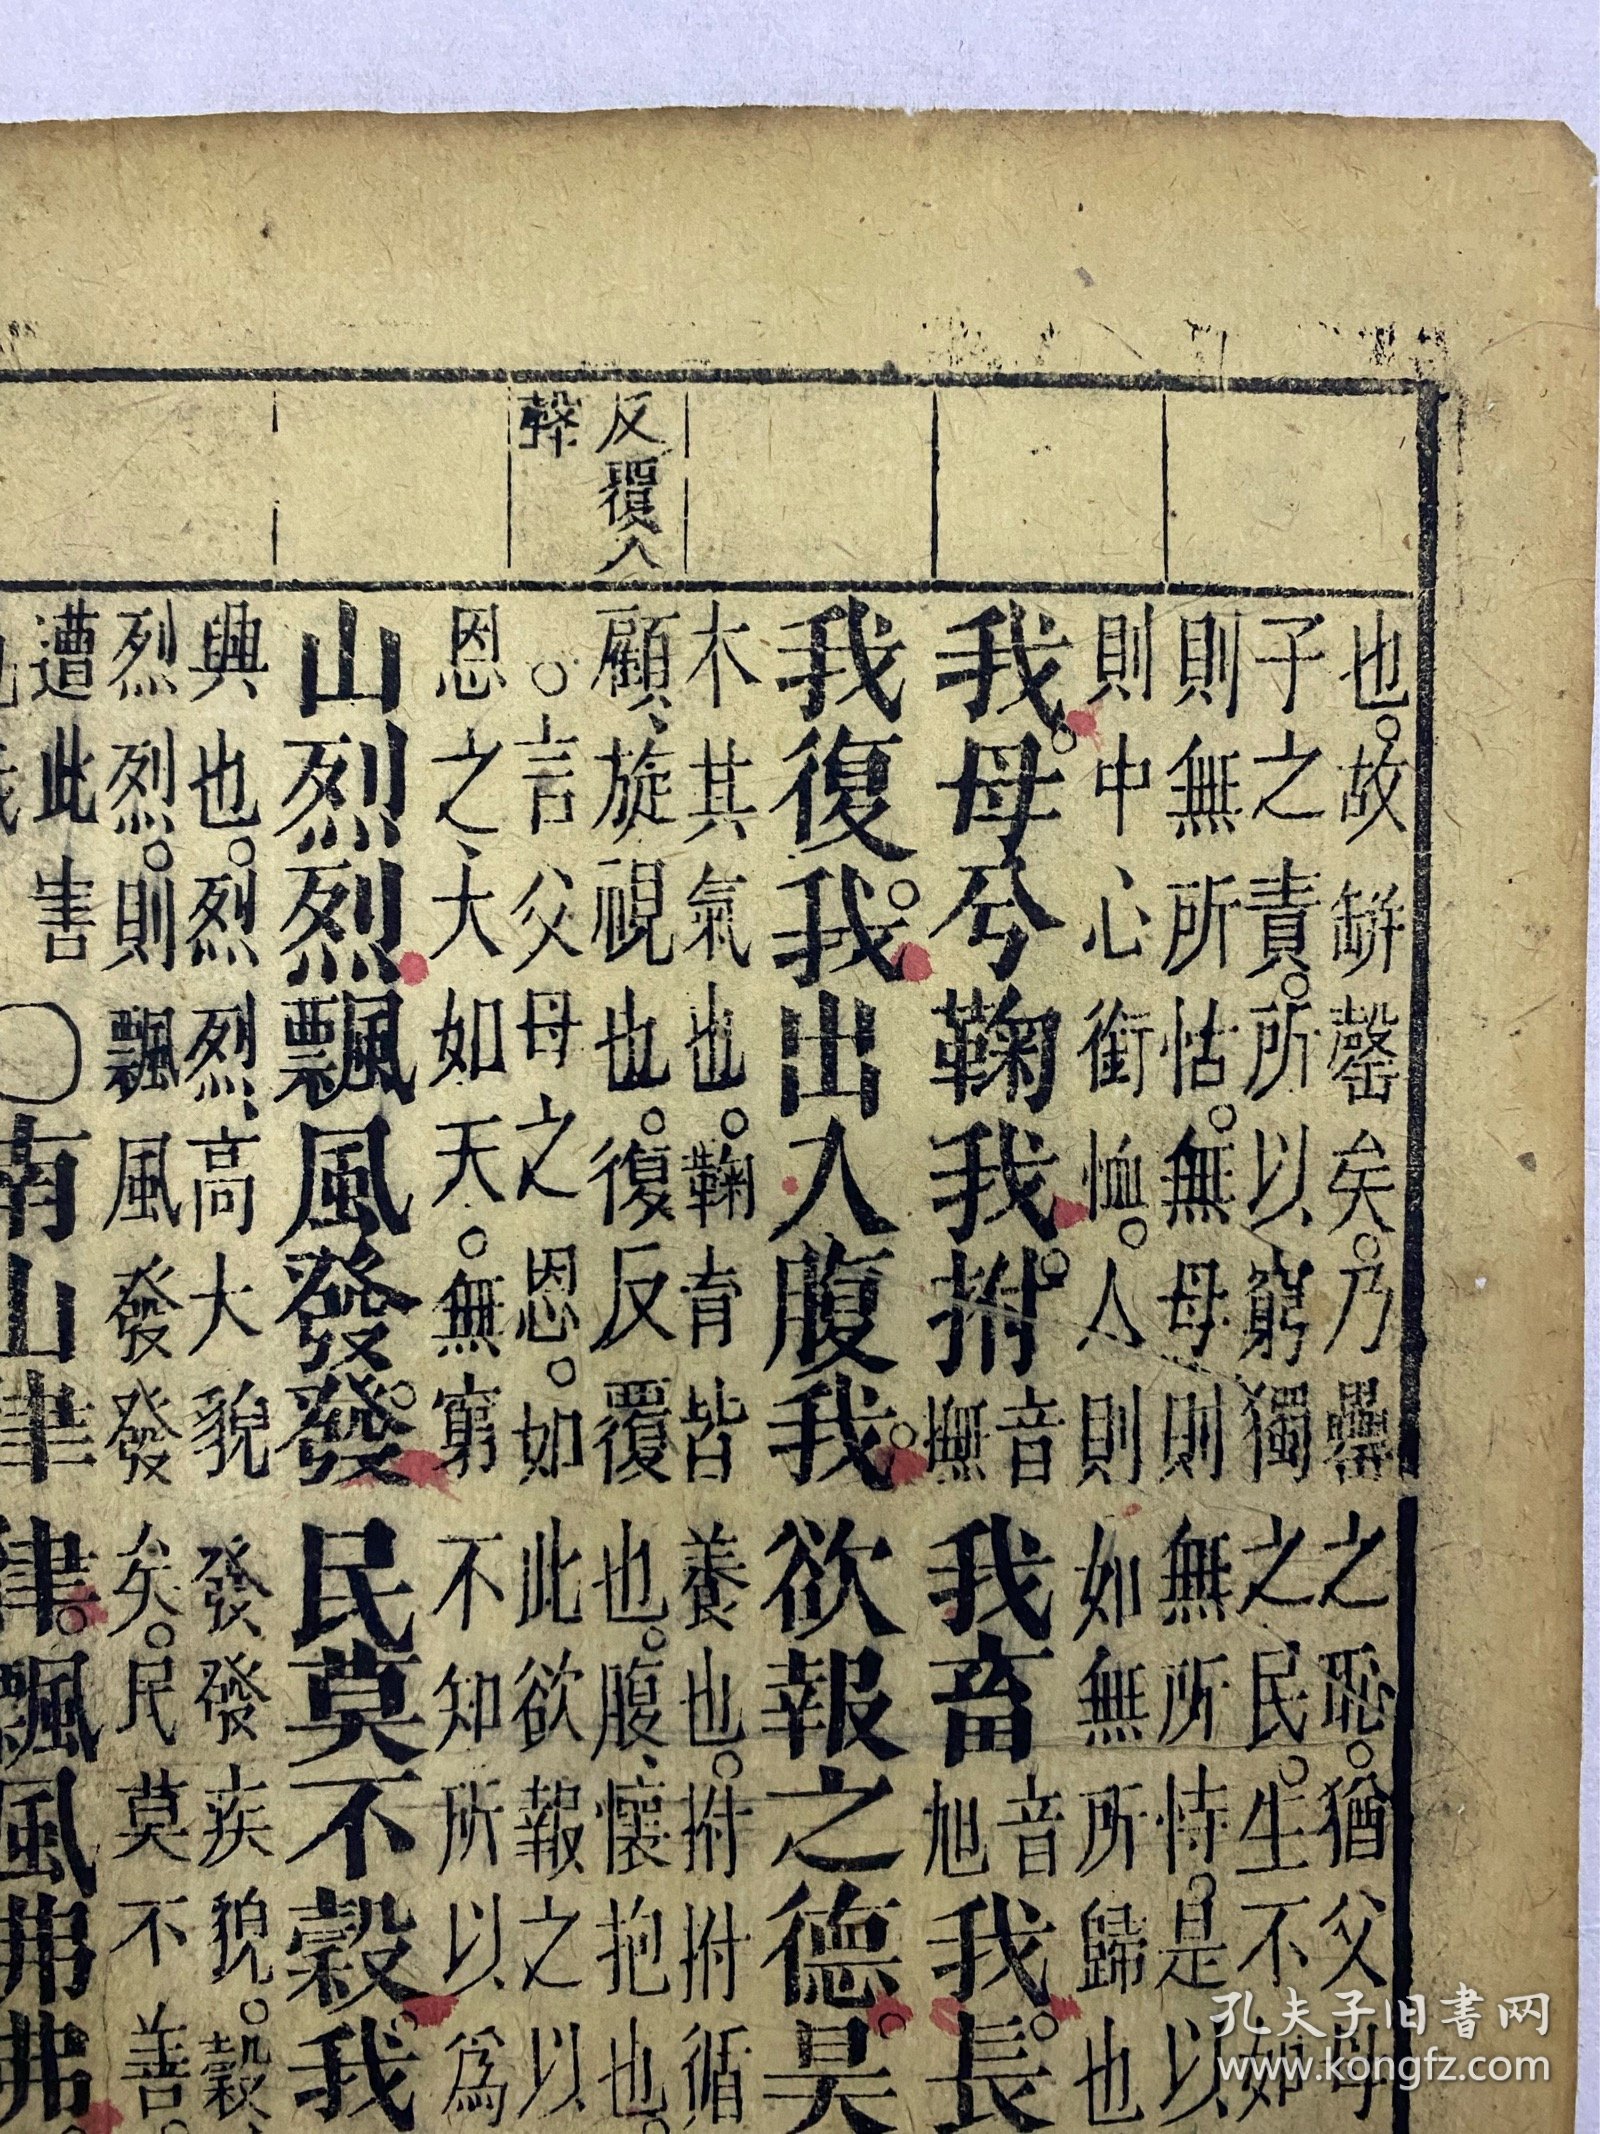 反覆入
聲
也。故缾罄矣。乃罍之恥。猶父母
子之責。所以窮獨之民。生不如
則無所怙。無母則無所恃。是以
則中心銜恤。人則如無所歸也
我。母兮鞠我。拊音撫我畜音旭我。長
我復我。出入腹我。欲報之德。昊
本其氣也。鞠育皆養也。拊拊循
顧、旋視也。復反覆也。腹、懷抱也。
。言父母之恩。如此欲報之以
恩之、大如天。無窮不知所以為
山烈烈飄風發發。民莫不穀。我
興也。烈烈、高大貌發發疾貌。穀、
烈烈。則飄風發發矣。民莫不善。
遭此害○南山律律。飄風弗弗。
孔夫子旧书网
www.kongfz.com